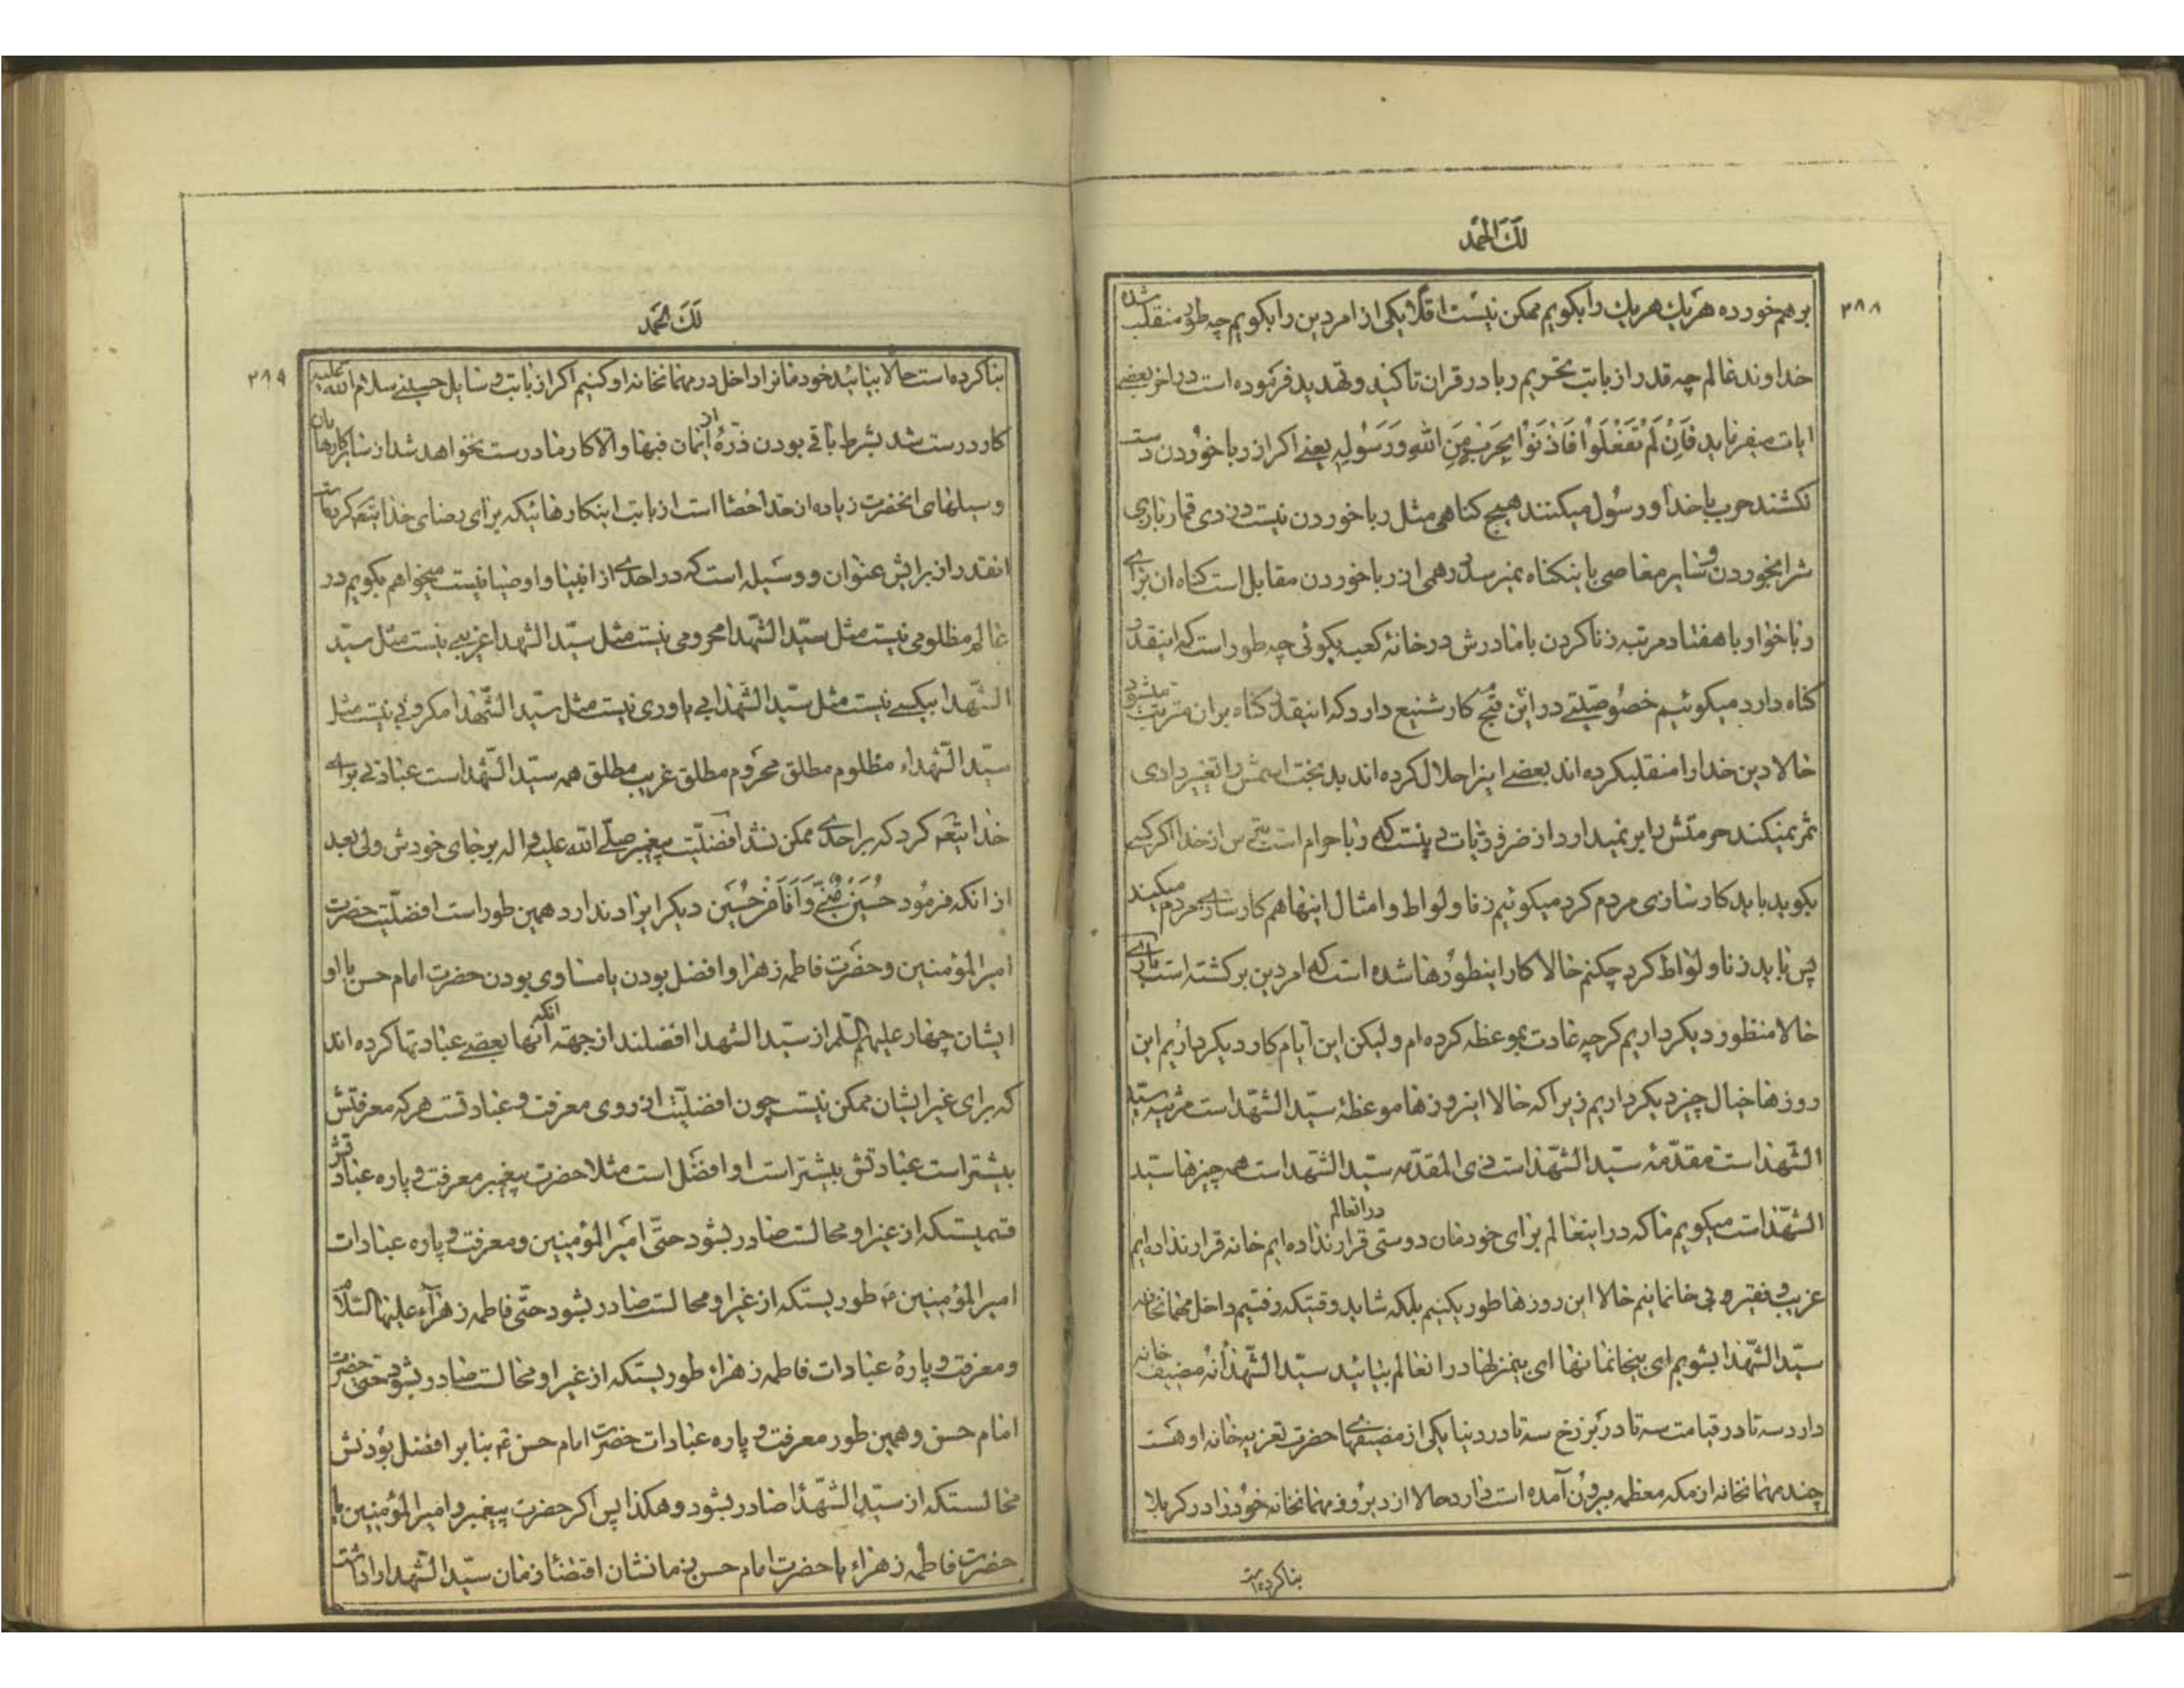 لك الحمد
۳۸۸
برهم خورده هريك هريك را بكويم ممكن نيست اقلا يكى از امر دين را بكويم چه طور منقلب شده
خداوند عالم چه قدر از بابت تحريم ربا در قران تاكيد و تهديد فرموده است در اخر بعضى
ايات ميفرمايد فَاِنْ لَمْ تَفْعَلُوْا فَاْذَنُوْا بِحَرْبٍ مِنَ اللهِ وَرَسُوْلِهِ يعنى اكر از ربا خوردن دست
نكشند حرب با خدا و رسول ميكنند هيچ كناهى مثل ربا خوردن نيست دزدى قمار بازى
شرابخوردن و ساير معاصى باينكناه نميرسد درهمى از ربا خوردن مقابل است كناه ان براى
رباخوار با هفتاد مرتبه زنا كردن با مادرش در خانه كعبه بكوئى چه طور است كه اينقدر
كناه دارد ميكوئيم خصوصيتى در اين قبح كار شنيع دارد كه اينقدر كناه بران مترتب ميشود
حالا دين خدا را منقلب كرده اند بعضى اينرا حلال كرده اند بدبخت اسمش را تغيير دادى
ثمر نميكند حرمتش را بر نميدارد از ضروريات دينست كه ربا حرام است بترس از خدا اكر كسى
بكويد بايد كارسازى مردم كرد ميكوئيم زنا و لواط و امثال اينها هم كارسازى مردم ميكنند
پس بايد زنا و لواط كرد چكنم حالا كار اينطورها شده است كه امر دين بركشته است بارى
حالا منظور ديكر داريم كرچه عادت بموعظه كرده ام وليكن اين ايام كار ديكر داريم اين
روزها خيال چيز ديكر داريم زيرا كه حالا اينروزها موعظه سيد الشهداست مرثيه سيد
الشهداست مقدمه سيد الشهداست ذى المقدمه سيد الشهداست همه چيزها سيد
الشهداست ميكويم ما كه در اينعالم براى خودمان دوستى قرار نداده ايم در انعالم خانه قرار نداده ايم
غريب و فقير و بى خانمانيم حالا اين روزها طور يكنيم بلكه شايد وقتيكه رفتيم داخل مهمانخانه
سيد الشهدا بشويم اى بيخانمانها اى بيمنزلها در انعالم بيائيد سيد الشهدا نه مضيف خانه
دارد سه تا در قيامت سه تا در برزخ سه تا در دنيا يكى از مضيفهاى حضرت تعزيه خانه او هست
چند مهمانخانه از مكه معظمه بيرون آمده است دارد حالا از ديروز مهمانخانه خود را در كربلا
بنا كرده است
لك الحمد
۳۸۹
بنا كرده است حالا بيائيد خودمانرا داخل در مهمانخانه او كنيم اكر از بابت وسايل حسينى سلام الله عليه
كار درست شد بشرط باقى بودن ذره از ايمان فبها والا كار ما درست نخواهد شد از ساير كارها يان
وسيلهاى انحضرت زياده از حد احصا است از بابت اينكارهائيكه براى رضاى خدا بتنعم كرده است
انقدر از برايش عنوان و وسيله است كه در احدى از انبيا و اوصيا نيست ميخواهم بكويم در
عالم مظلومى نيست مثل سيد الشهدا محرومى نيست مثل سيد الشهدا غريبى نيست مثل سيد
الشهدا بيكسى نيست مثل سيد الشهدا بى ياورى نيست مثل سيد الشهدا مكروبى نيست مثل
سيد الشهداء مظلوم مطلق محروم مطلق غريب مطلق همه سيد الشهداست عبادتى براى
خدا كرد كه بر احدى ممكن نشد افضليت پيغمبر صلى الله عليه و اله بر جاى خودش ولى بعد
از انكه فرمود حُسَيْنُ مِنّى وَاَنَا مِنْ حُسَيْن ديكر ايراد ندارد همين طور است افضليت حضرت
امير المؤمنين و حضرت فاطمه زهرا و افضل بودن يا مساوى بودن حضرت امام حسن با او
ايشان چهار عليهم السلم از سيد الشهدا افضلند از جهة انكه انها بعضى عبادتها كرده اند
كه براى غير ايشان ممكن نيست چون افضليت از روى معرفت و عبادتست هر كه معرفتش
بيشتر است عبادتش بيشتر است او افضل است مثلا حضرت پيغمبر معرفت و پاره عباداتش
قسميستكه از غير او محالست صادر بشود حتى امير المؤمنين و معرفت و پاره عبادات
امير المؤمنين ع طوريستكه از غير او محالست صادر بشود حتى فاطمه زهراء عليها السلام
و معرفت و پاره عبادات فاطمه زهراء طوريستكه از غير او محالست صادر بشود حتى حضرت
امام حسن و همين طور معرفت و پاره عبادات حضرت امام حسن ع بنا بر افضل بودنش
محالستكه از سيد الشهدا صادر بشود و هكذا پس اكر حضرت پيغمبر و امير المؤمنين يا
حضرت فاطمه زهراء يا حضرت امام حسن زمانشان اقتضاء زمان سيد الشهدا را داشت